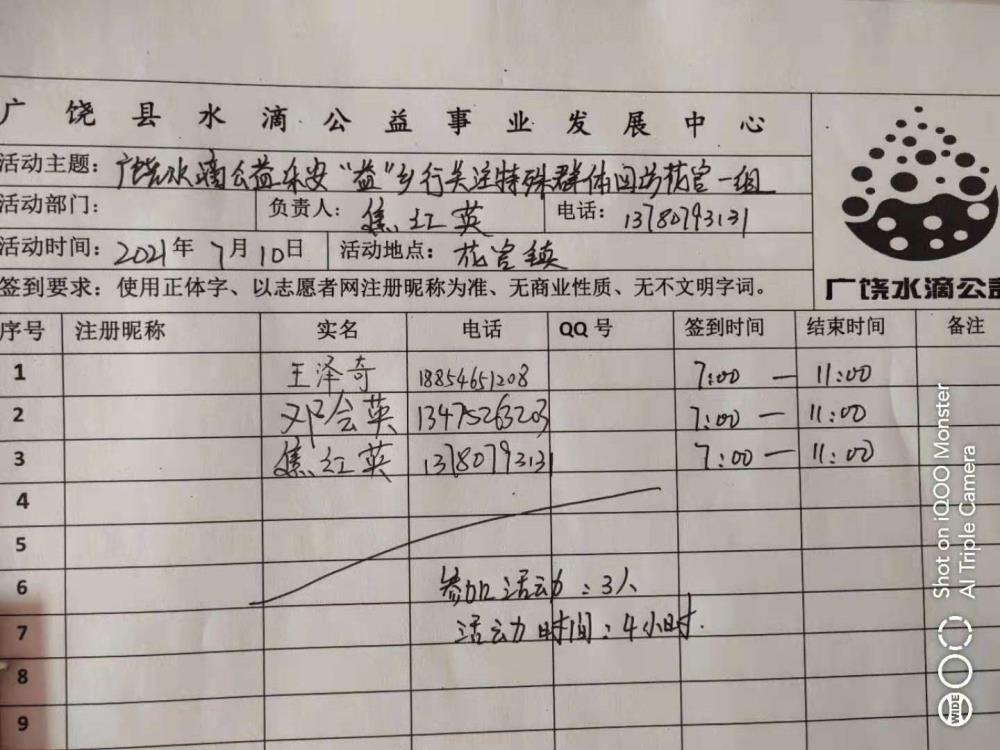 广饶县水滴公益事业发展中心
活动主题：广饶水滴公益乐安“益”乡行关注特殊群体回访花官一组
活动部门： 负责人：焦红英 电话：13780793131
活动时间：2021年7月10日 活动地点：花官镇
签到要求：使用正体字、以志愿者网注册昵称为准、无商业性质、无不文明字词。
广饶水滴公益
序号 注册昵称 实名 电话 QQ号 签到时间 结束时间 备注
1 王泽奇 18854651208 7:00 — 11:00
2 邓会英 13475263203 7:00 — 11:00
3 焦红英 13780793131 7:00 — 11:00
4
5
6 参加活动：3人
7 活动时间：4小时.
8
9
Shot on iQOO Monster
AI Triple Camera
WIDE